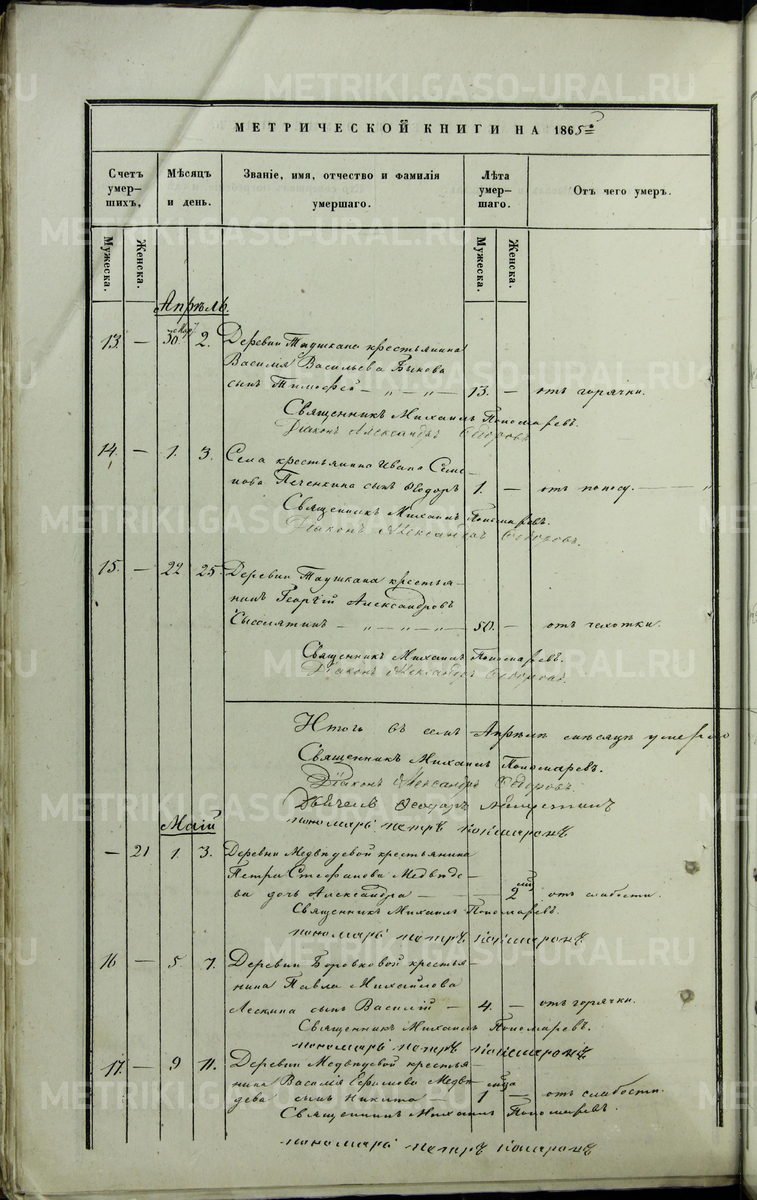 МЕТРИЧЕСКОЙ КНИГИ НА 1865
Счетъ умер- шихъ,
Мѣсяцъ и день.
Званіе, имя, отчество и фамилія умершаго.
Лѣта умер- шаго.
Отъ чего умеръ.
Мужеска. Женска. Мужеска. Женска.
Апрѣль.
13. — 30 Мар 2. Деревни Таушкана крестьянина
Василія Васильева Быкова
сынъ Тимофей — „ — „ — 13. — отъ горячки.
Священникъ Михаилъ Пономаревъ.
Діаконъ Александръ Ѳедоровъ
14. — 1. 3. Села крестьянина Ивана Семе-
нова Печенкина сынъ Ѳеодоръ 1. — отъ поносу. — „
Священникъ Михаилъ Пономаревъ.
Діаконъ Александръ Ѳедоровъ.
15. — 22 25. Деревни Таушкана крестья-
нинъ Георгій Александровъ
— „ — „ — 50. — отъ чахотки.
Священникъ Михаилъ Пономаревъ.
Діаконъ Александръ Ѳедоровъ.
Итого въ семъ Апрѣлѣ мѣсяцѣ умерло
Священникъ Михаилъ Пономаревъ.
Діаконъ Александръ Ѳедоровъ.
Ѳеодоръ
пономарь петръ
Маій
— 21 1. 3. Деревни Медвѣдевой крестьянина
Петра Стефанова Медвѣде-
ва дочь Александра — 2 отъ слабости.
Священникъ Михаилъ Пономаревъ.
пономарь петръ
16 — 5. 7. Деревни Боровковой крестья-
нина Павла Михайлова
сынъ Василій — 4. — отъ горячки.
Священникъ Михаилъ Пономаревъ.
пономарь петръ
17. — 9 11. Деревни Медвѣдевой крестья-
нина Василія Ефимова Медвѣ-
дева сынъ Никита — 1 — отъ слабости.
Священникъ Михаилъ Пономаревъ.
пономарь петръ
METRIKI.GASO-URAL.RU